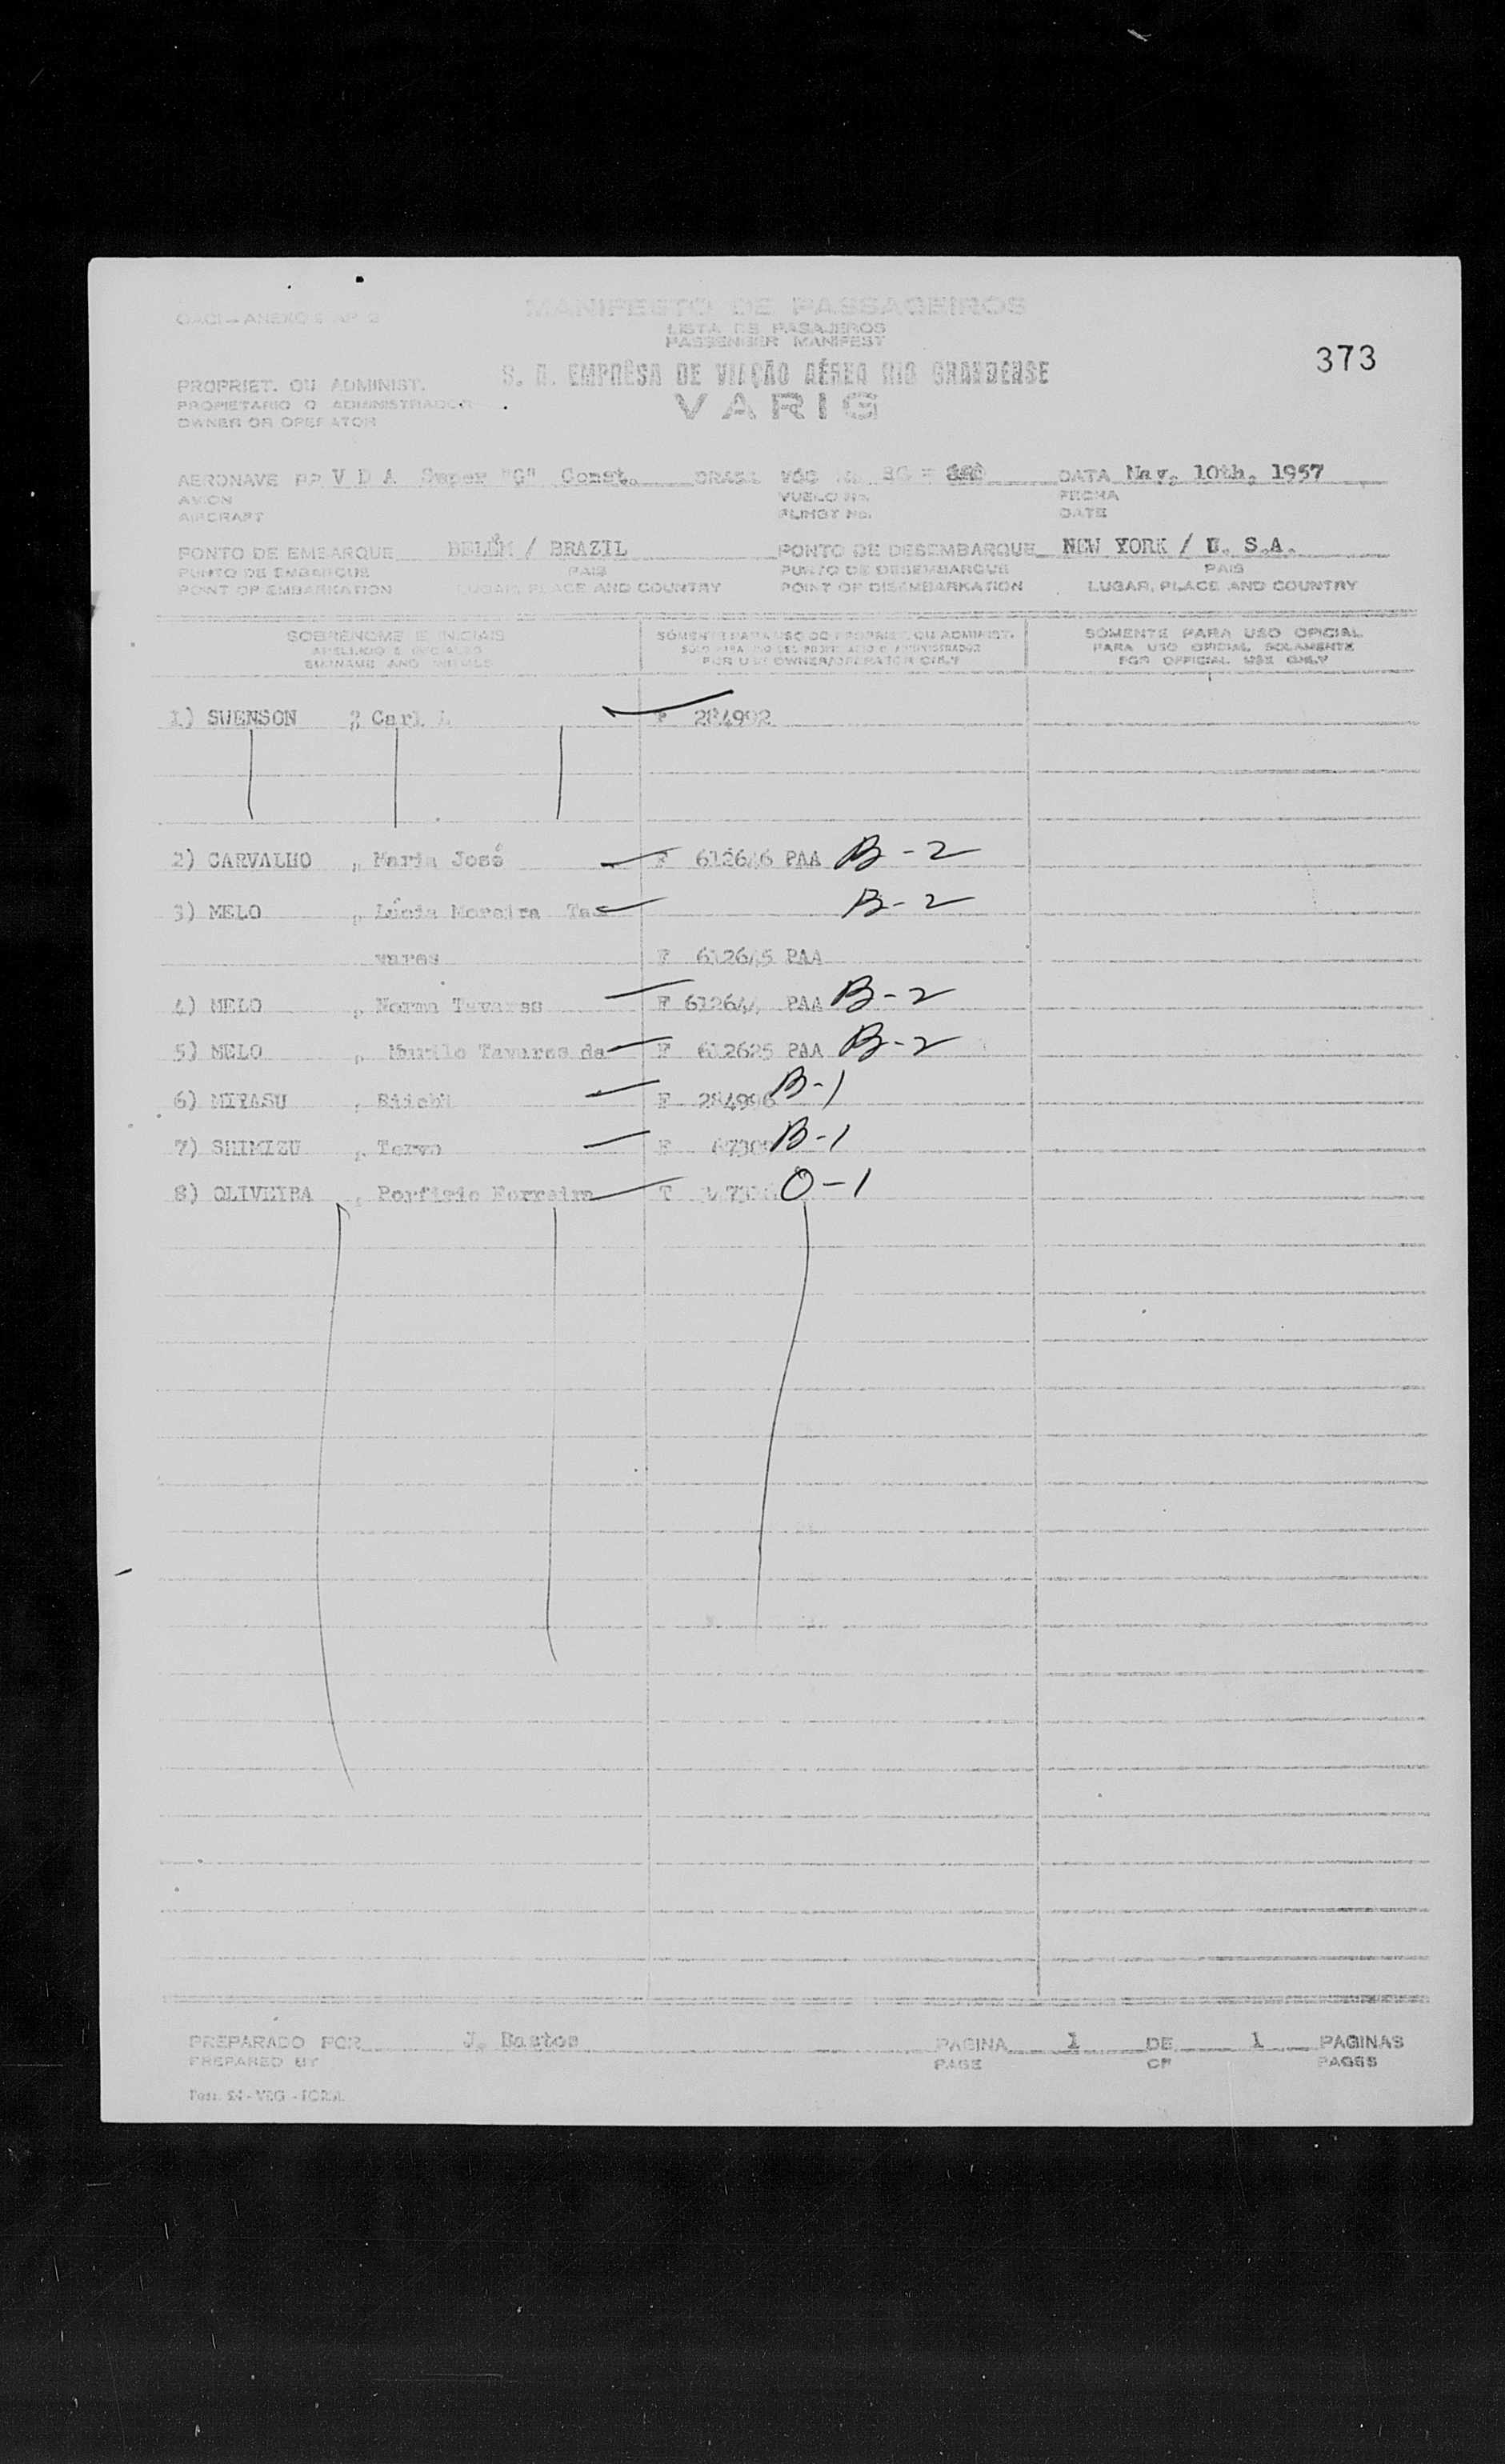 MANIFESTO DE PASSAGEIROS
LISTA DE PASAJEROS
PASSENGER MANIFEST
373
S. A. EMPRÊSA DE VIAÇÃO AÉREA RIO GRANDENSE
VARIG
PROPRIET. OU ADMINIST.
PROPIETARIO O ADMINISTRADOR
OWNER OR OPERATOR
AERONAVE PP V D A Super "G" Const. BRASIL VÔO DATA May, 10th, 1957
AVION VUELO No. FECHA
AIRCRAFT FLIHGT No. DATE
PONTO DE EMBARQUE BELÉM / BRAZIL PONTO DE DESEMBARQUE NEW YORK / U. S.A.
PUNTO DE EMBARQUE PAIS PUNTO DE DESEMBARQUE PAIS
POINT OF EMBARKATION LUGAR, PLACE AND COUNTRY POINT OF DISEMBARKATION LUGAR, PLACE AND COUNTRY
SOBRENOME E INICIAIS SÓMENTE PARA USO DO PROPRIET. OU ADMINIST. SÓMENTE PARA USO OFICIAL
APELLIDO E INICIALES PARA USO OFICIAL SOLAMENTE
SURNAME AND INITIALS FOR USE OWNER/OPERATOR ONLY FOR OFFICIAL USE ONLY
1) SWENSON Carl F 284992
2) CARVALHO , Maria José F 612646 PAA B-2
3) MELO , Lúcia Moreira Ta- B-2
vares F 612645 PAA
4) MELO , Norma Tavares F 612644 PAA B-2
5) MELO , Murilo Tavares de F 612625 PAA B-2
6) MIYASU , F 284996 B-1
7) SHIMIZU , B-1
8) OLIVEIRA , Porfirio Ferreira O-1
PREPARADO POR J. Bastos PAGINA 1 DE 1 PAGINAS
PREPARED BY PAGE OF PAGES